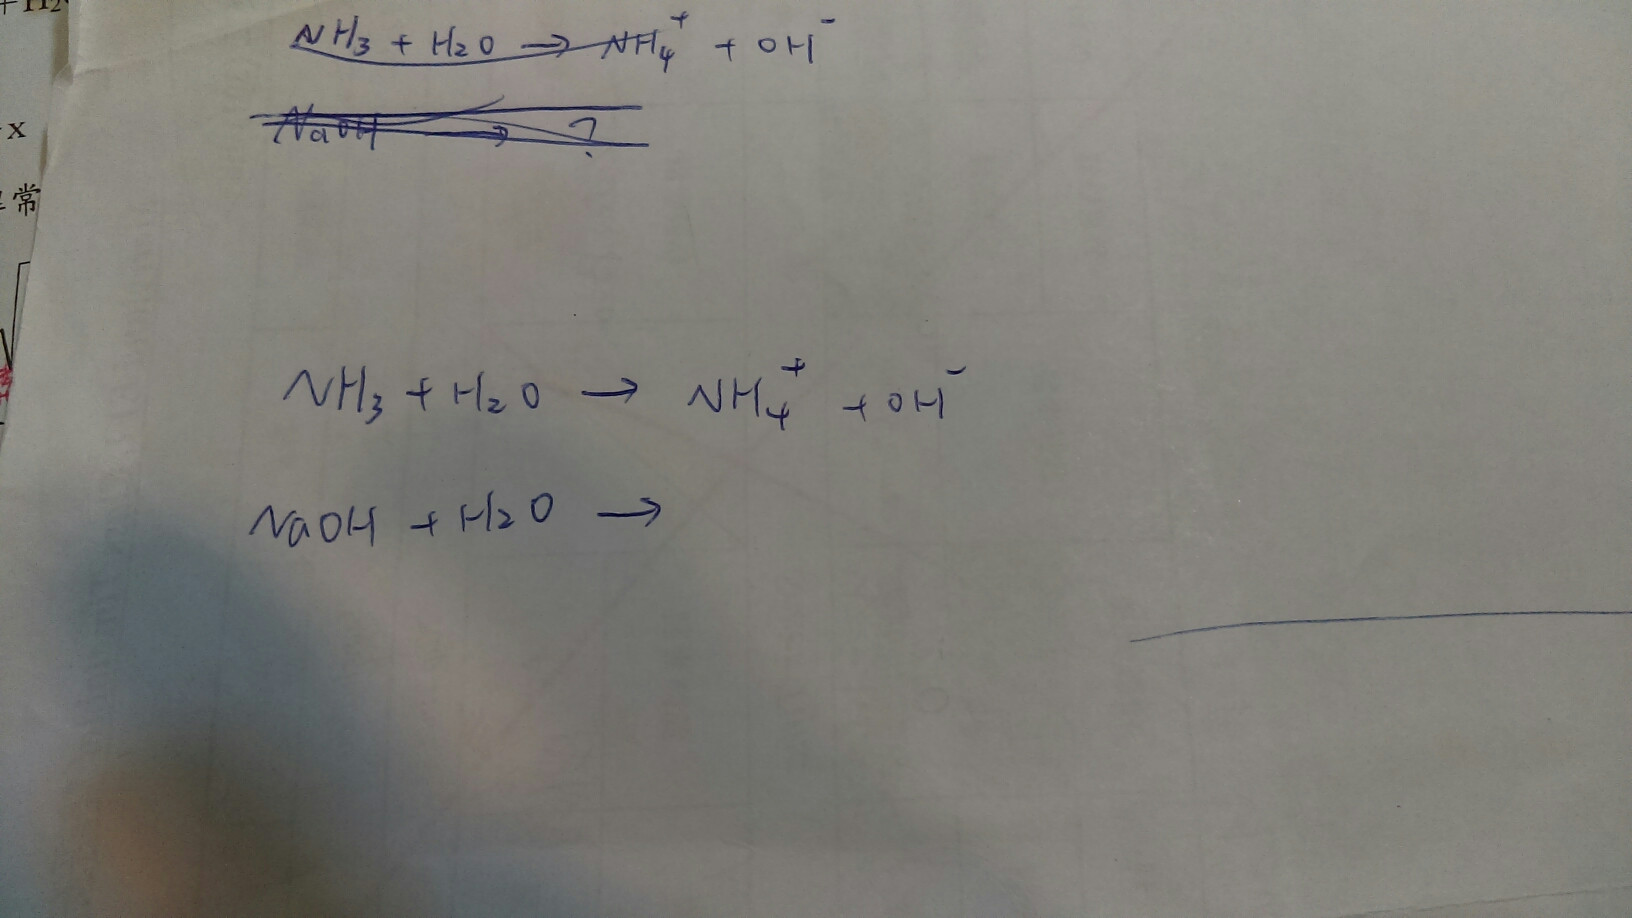 NH₃ + H₂O → NH₄⁺ + OH⁻
NaOH → ?
x
常
NH₃ + H₂O → NH₄⁺ + OH⁻
NaOH + H₂O →